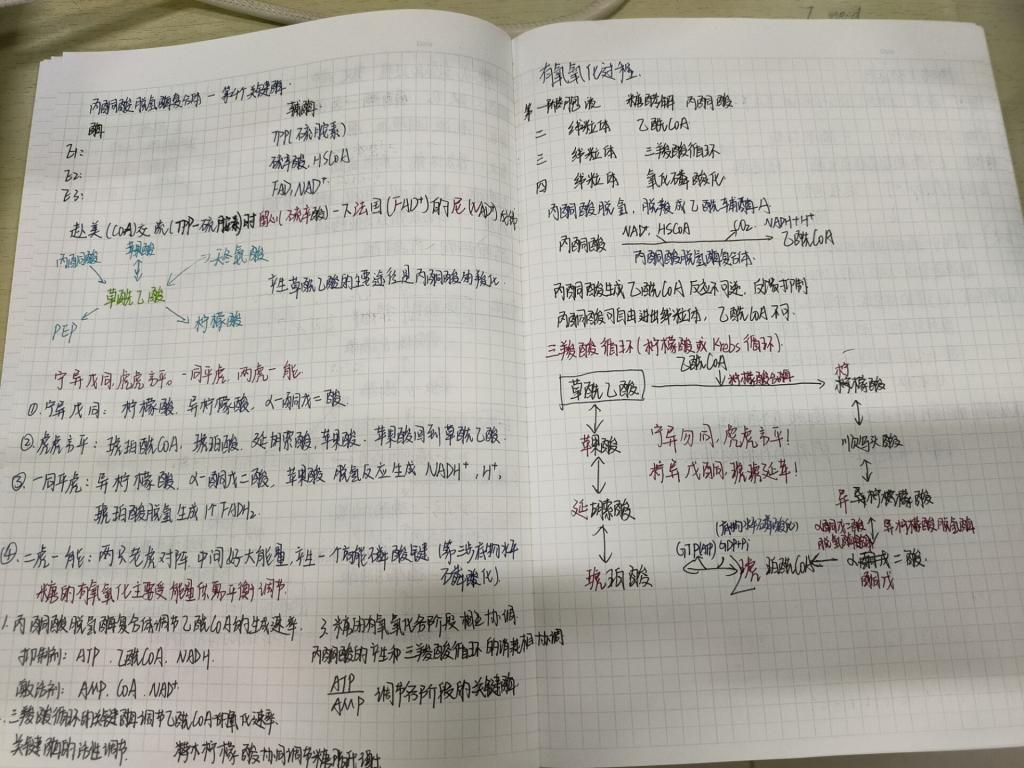 丙酮酸脱氢酶复合体 — 第4个关键酶.
酶 辅酶.
E1: TPP(硫胺素)
E2: 硫辛酸, HSCoA
E3: FAD, NAD⁺
赴美(COA)交流(TPP-硫胺素)时 (硫辛酸)一下法国(FAD⁺)的尼(NAD⁺)
丙酮酸 苹果酸 天冬氨酸
草酰乙酸
PEP 柠檬酸
产生草酰乙酸的主要途径是丙酮酸羧化.
宁异戊同,虎虎言平。一同平虎,两虎一能.
①.宁异戊同: 柠檬酸, 异柠檬酸, α-酮戊二酸.
②虎虎言平: 琥珀酰COA, 琥珀酸, 延胡索酸, 苹果酸, 苹果酸回到草酰乙酸.
③一同平虎: 异柠檬酸, α-酮戊二酸, 苹果酸 脱氢反应生成 NADH⁺, H⁺,
琥珀酸脱氢生成1个FADH₂.
④.二虎一能: 两只老虎对阵 中间好大能量,产生一个高能磷酸键 (第三步底物水平
磷酸化).
糖的有氧氧化主要受能量供需平衡调节.
1. 丙酮酸脱氢酶复合体调节乙酰COA的生成速率.
抑制剂: ATP, 乙酰COA, NADH.
激活剂: AMP, COA, NAD⁺
三羧酸循环的关键酶调节乙酰COA 氧化速率.
关键酶的活性调节.
3. 糖的有氧氧化各阶段相互协调
丙酮酸的产生和三羧酸循环的消耗相协调
ATP/AMP 调节各阶段的关键酶
柠檬酸协同调节糖酵解
有氧氧化过程.
第一 胞液 糖酵解 丙酮酸
二 线粒体 乙酰COA
三 线粒体 三羧酸循环
四 线粒体 氧化磷酸化.
丙酮酸脱氢,脱羧成乙酰辅酶A
NAD⁺, HSCOA CO₂. NADH+H⁺
丙酮酸 乙酰COA
丙酮酸脱氢酶复合体.
丙酮酸生成乙酰COA反应不可逆, 反馈抑制
丙酮酸可自由进出线粒体, 乙酰COA不可.
三羧酸循环(柠檬酸或Krebs循环).
乙酰COA
草酰乙酸 柠檬酸合酶 柠檬酸
苹果酸 宁异勿同, 虎虎言平! 顺乌头酸
柠异戊酮, 琥琥延苹! 异柠檬酸
延胡索酸 (底物水平磷酸化) α酮戊二酸 异柠檬酸脱氢酶
GTP(ATP) GDP+Pi 脱氢酶
琥珀酸 琥珀酰COA α酮戊二酸.
酮戊